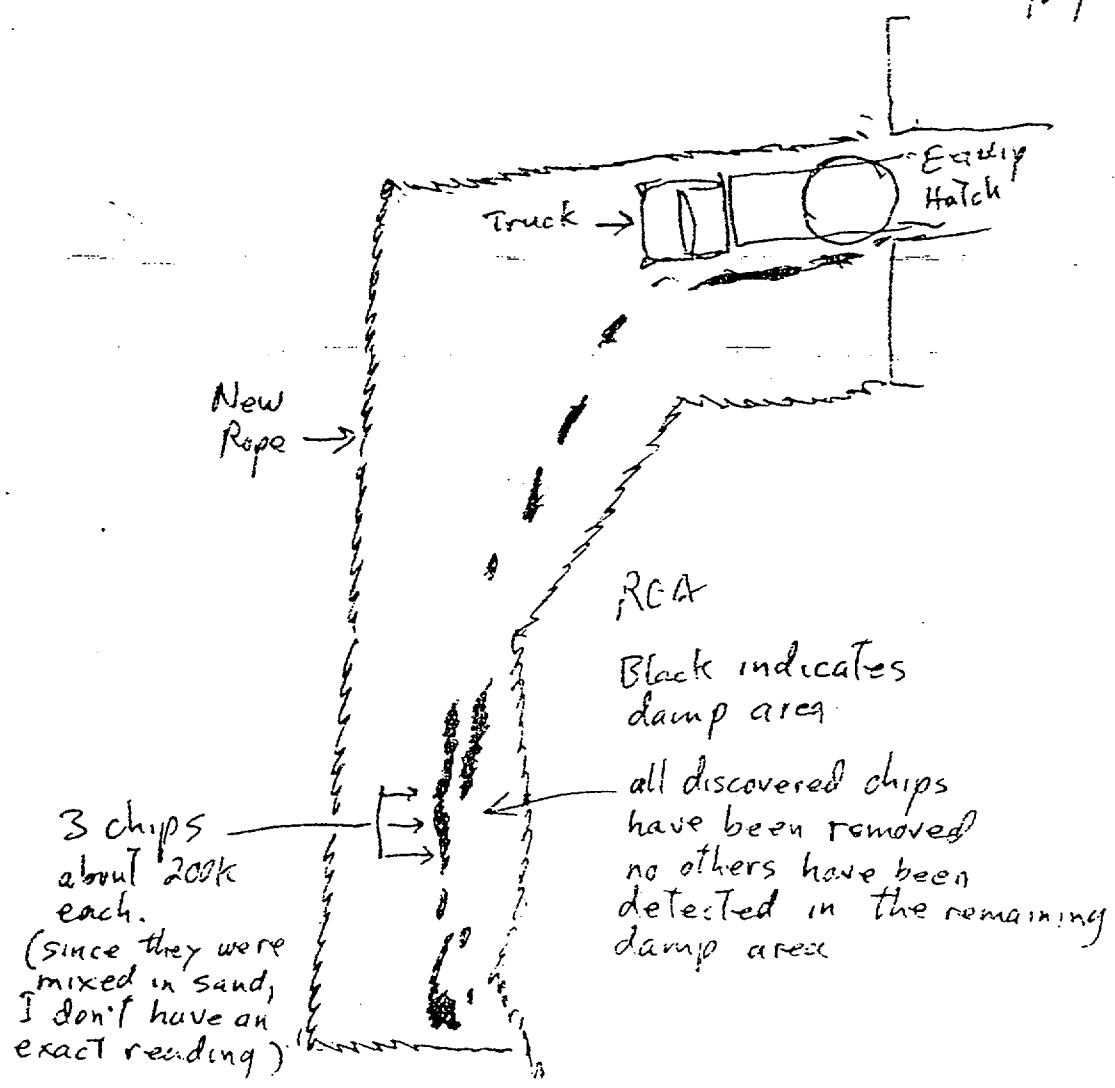 Equip
Hatch
Truck
New
Rope
RCA
Black indicates
damp area
all discovered chips
have been removed
no others have been
detected in the remaining
damp area
3 chips
about 200k
each.
(since they were
mixed in sand,
I don't have an
exact reading)